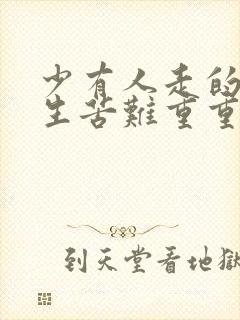 少有人走的
生苦難重重
到天堂看地獄